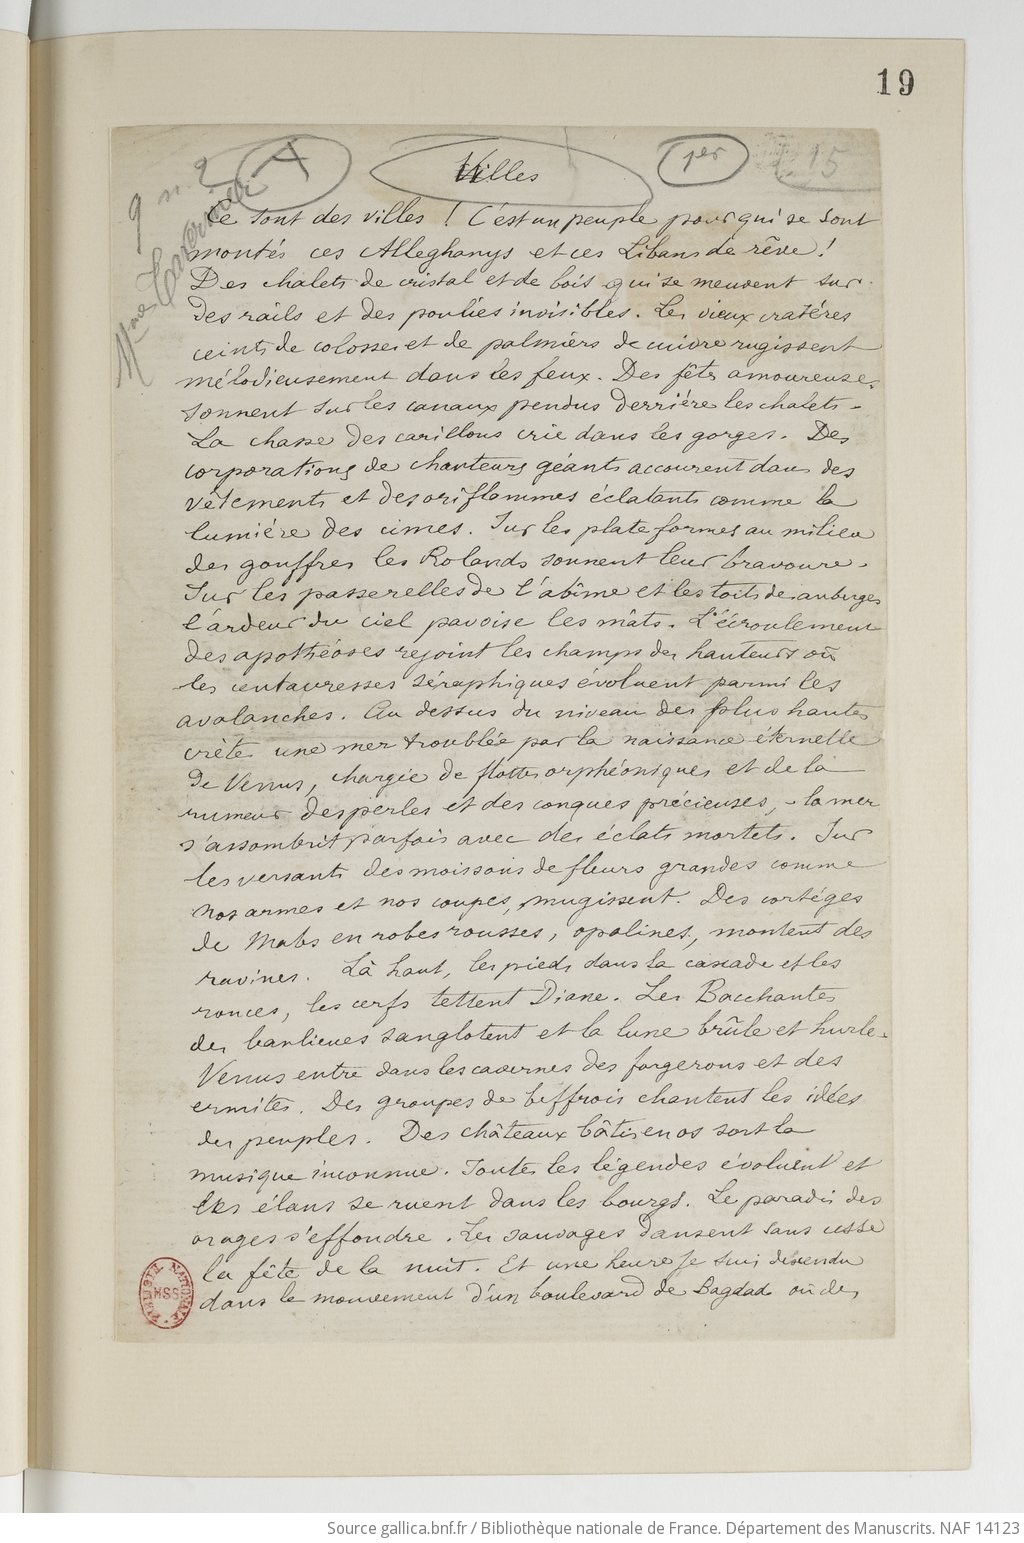 19
A
Villes
1er
15
9 n. 2
Mme
Ce sont des villes ! C'est un peuple pour qui se sont
montés ces Alleghanys et ces Libans de rêve !
Des chalets de cristal et de bois qui se meuvent sur
des rails et des poulies invisibles. Les vieux cratères
ceints de colosses et de palmiers de cuivre rugissent
mélodieusement dans les feux. Des fêtes amoureuses
sonnent sur les canaux pendus derrière les chalets.
La chasse des carillons crie dans les gorges. Des
corporations de chanteurs géants accourent dans des
vêtements et des oriflammes éclatants comme la
lumière des cimes. Sur les plateformes au milieu
des gouffres les Rolands sonnent leur bravoure.
Sur les passerelles de l'abîme et les toits des auberges
l'ardeur du ciel pavoise les mâts. L'écroulement
des apothéoses rejoint les champs des hauteurs où
les centauresses séraphiques évoluent parmi les
avalanches. Au dessus du niveau des plus hautes
crêtes une mer troublée par la naissance éternelle
de Vénus, chargée de flottes orphéoniques et de la
rumeur des perles et des conques précieuses, – la mer
s'assombrit parfois avec des éclats mortels. Sur
les versants des moissons de fleurs grandes comme
nos armes et nos coupes, mugissent. Des cortèges
de Mabs en robes rousses, opalines, montent des
ravines. Là haut, les pieds dans la cascade et les
ronces, les cerfs tettent Diane. Les Bacchantes
des banlieues sanglotent et la lune brûle et hurle.
Vénus entre dans les cavernes des forgerons et des
ermites. Des groupes de beffrois chantent les idées
des peuples. Des châteaux bâtis en os sort la
musique inconnue. Toutes les légendes évoluent et
les élans se ruent dans les bourgs. Le paradis des
orages s'effondre. Les sauvages dansent sans cesse
la fête de la nuit. Et une heure je suis descendu
dans le mouvement d'un boulevard de Bagdad où des
BIBLIOTH. NATIONALE MSS
Source gallica.bnf.fr / Bibliothèque nationale de France. Département des Manuscrits. NAF 14123